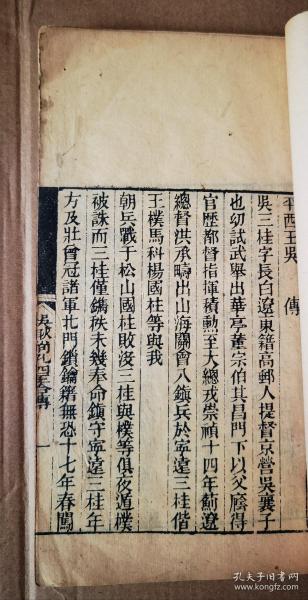 平西王吳　傳
吳三桂字長白遼東籍高郵人提督京營吳襄子
也切試武舉出華亭董宗伯其昌門下以父廕得
官歷都督指揮積勳至大總戎崇禎十四年薊遼
總督洪承疇出山海關會八鎮兵於寧遠三桂偕
王樸馬科楊國柱等與我
朝兵戰于松山國柱敗沒三桂與樸等俱夜遁樸
被誅而三桂僅鐫秩未幾奉命鎮守寧遠三桂年
方及壯曾冠諸軍北門鎖鑰籍無恐十七年春闖
吳耿尚孔四王合傳
一
孔夫子旧书网
book.kongfz.com